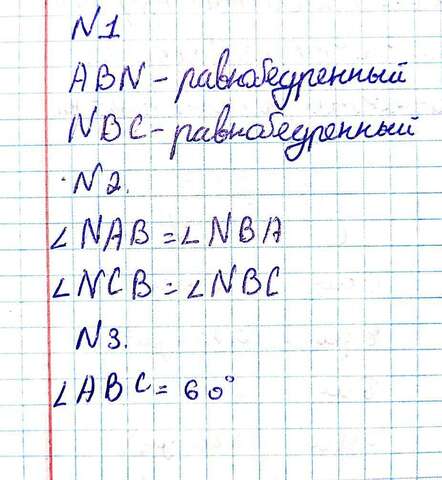 N1
ABN - равнобедренный
NBC - равнобедренный
N2.
∠NAB = ∠NBA
∠NCB = ∠NBC
N3.
∠ABC = 60°